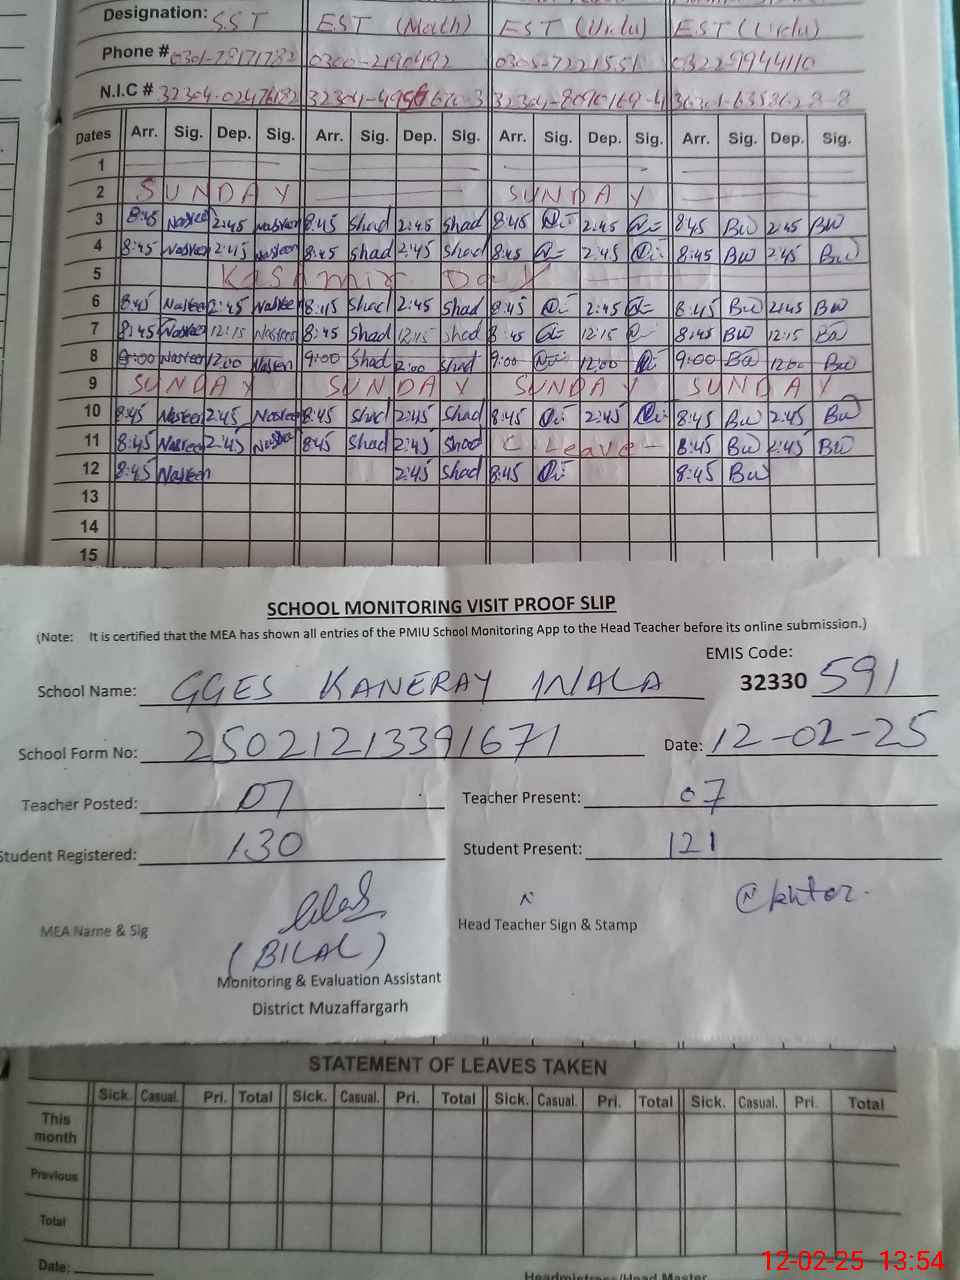 Designation: SST EST (Math) EST (Urdu) EST (Urdu)
Phone # 0301-78171782 0300-2190492 0305-7221551 0322-9944110
N.I.C # 32304-02476182 32304-4956670-3 32304-8090169-4 36301-6358628-8
Dates Arr. Sig. Dep. Sig. Arr. Sig. Dep. Sig. Arr. Sig. Dep. Sig. Arr. Sig. Dep. Sig.
1
2 SUNDAY SUNDAY
3 8:45 Nasreen 2:45 Nasreen 8:45 Shad 2:45 Shad 8:45 2:45 8:45 Bw 2:45 Bw
4 8:45 Nasreen 2:45 Nasreen 8:45 Shad 2:45 Shad 8:45 2:45 8:45 Bw 2:45 Bw
5 Kashmir Day
6 8:45 Nasreen 2:45 Nasreen 8:45 Shad 2:45 Shad 8:45 2:45 8:45 Bw 2:45 Bw
7 8:45 Nasreen 12:15 Nasreen 8:45 Shad 12:15 Shad 8:45 12:15 8:45 Bw 12:15 Bw
8 9:00 Nasreen 12:00 Nasreen 9:00 Shad 12:00 Shad 9:00 12:00 9:00 Bw 12:00 Bw
9 SUNDAY SUNDAY SUNDAY SUNDAY
10 8:45 Nasreen 2:45 Nasreen 8:45 Shad 2:45 Shad 8:45 2:45 8:45 Bw 2:45 Bw
11 8:45 Nasreen 2:45 Nasreen 8:45 Shad 2:45 Shad C. Leave - 8:45 Bw 2:45 Bw
12 8:45 Nasreen 2:45 Shad 8:45 8:45 Bw
13
14
15
SCHOOL MONITORING VISIT PROOF SLIP
(Note: It is certified that the MEA has shown all entries of the PMIU School Monitoring App to the Head Teacher before its online submission.)
EMIS Code:
School Name: GGES KANERAY WALA 32330 591
School Form No: 25021213391671 Date: 12-02-25
Teacher Posted: 07 Teacher Present: 07
Student Registered: 130 Student Present: 121
MEA Name & Sig (BILAL) Head Teacher Sign & Stamp
Monitoring & Evaluation Assistant
District Muzaffargarh
STATEMENT OF LEAVES TAKEN
Sick. Casual. Pri. Total Sick. Casual. Pri. Total Sick. Casual. Pri. Total Sick. Casual. Pri. Total
This month
Previous
Total
Date:
Headmistress/Head Master
12-02-25 13:54